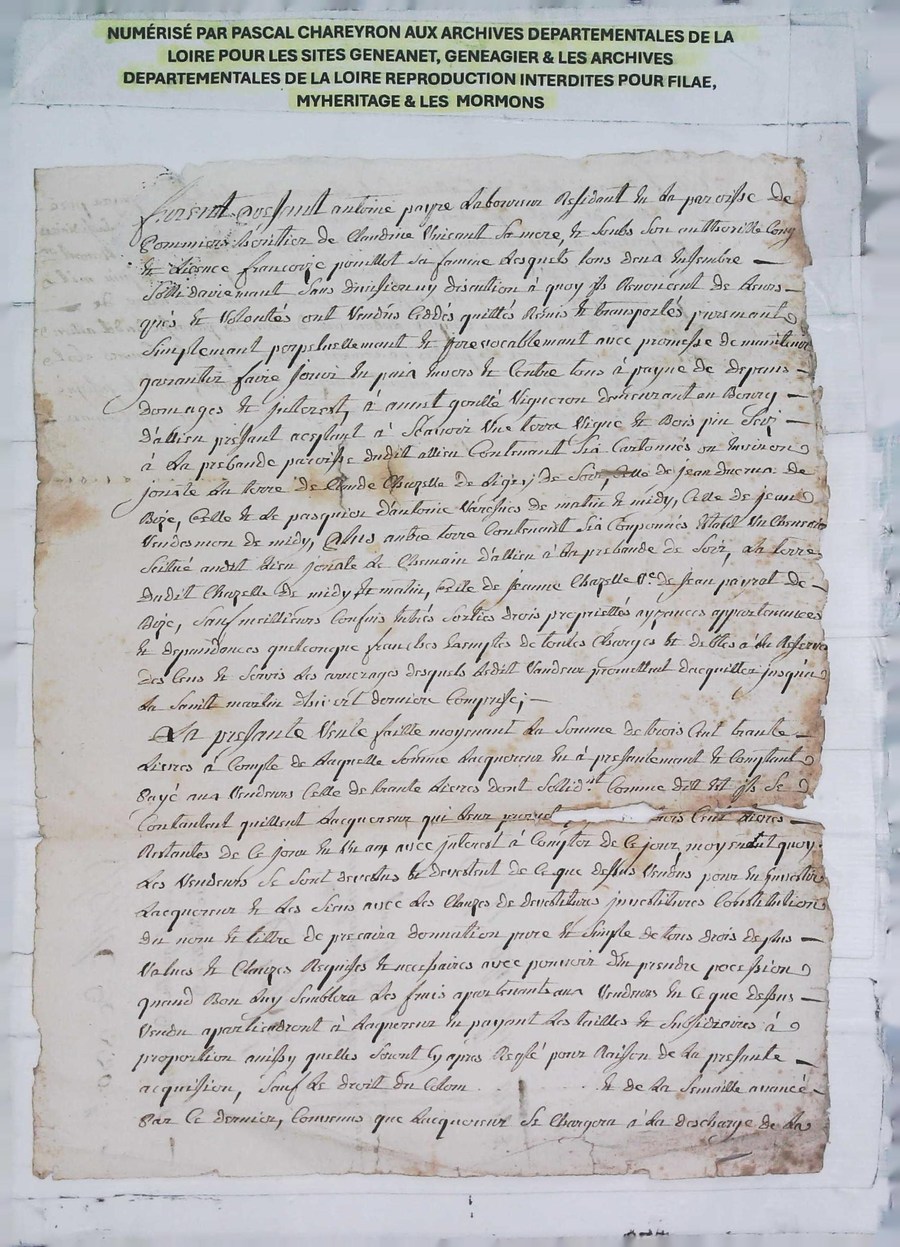 NUMÉRISÉ PAR PASCAL CHAREYRON AUX ARCHIVES DEPARTEMENTALES DE LA
LOIRE POUR LES SITES GENEANET, GENEAGIER & LES ARCHIVES
DEPARTEMENTALES DE LA LOIRE REPRODUCTION INTERDITES POUR FILAE,
MYHERITAGE & LES MORMONS
furent presant antoine payre Laboureur Residant En La paroisse de
Pommiers heoritier de Claudine Vincent Sa mere, & Soubs Son authorille Cong
& Licence francoise pouillot Sa famme Lesquels tous deux Ensemble
Sollidairemant Sans division ny discution à quoy ils Renoncent de Leurs
grés & Volontés ont Vendus Ceddés quittés Remis & transportés puremant
Simplemant perpetuellement & jrrevocablemant avec promesse de maintenir
garantir faire jouir En paix Envers & Contre tous à payne de depans
domages & jnterest, à Vigneron demeurant au Bourg
d'allieu present aceptant à Scavoir Une terre Vigne & Bois pin
à La prebande paroisse dudit allieu Contenant Six Cartonnés ou Environ
jouxte La terre de Claude Chazelle de de Soir, Celle de jean de
Bize, Celle & Le pasquier d'antoine Varesnes de matin & midy, Celle de jean
Vendesmon de midy, plus autre terre Contenant Six Couponnés
Scittué audit Lieu jouxte Le Chemain d'allieu à La prebande de Soir, La terre
Dudit Chazelle de midy & matin, Celle de jeanne Chazelle Ve de jean payrat de
Bize, Sauf meillieurs Confins Entrés Sorties drois proprietés aysances appartenances
& dependances quelconque franches Exemptes de toutes Charges & debtes à La Reserve
Des Cens & Servis Les arrerages desquels Ledit Vandeur promettent dacquitter jusqu'a
La Saint martin dhivert derniere Comprise;
La presante Vente faitte moyenant La Somme de trois Cent trante
Livres à Compte de Laquelle Somme Lacquereur En à presantement & Comptant
Payé aux Vendeurs Celle de trante Livres dont Sollidnt Comme dit Est ils Se
Contantent quittent Lacquereur qui Leur trois Cent Livres
Restantes de Ce jour En Un an avec jnterest à Compter de Ce jour, moyenant quoy
Les Vendeurs Se Sont devestus & devestent de Ce que dessus Vendus pour En jnvestir
Lacquereur & Les Siens avec Les Clauses de devestitures jnvestitures Constitution
Du nom & tittre de precaire donnation pure & Simple de tous drois de plus
Values & Clauses Requises & necessaires avec pouvoir d'En prendre pocession
quand Bon Luy Semblera Les fruis apartenants aux Vendeurs En Ce que dessus
Vendu apartiendront à Laquereur En payant Les tailles & Subsidiaires à
proportion quelles Seront Cy apres Reglé pour Raison de La presante
acquision, Sauf Le droit du Colom & de La Semaille avancé
Par Ce dernier, Convenus que Lacquereur Se Chargera à La descharge de La